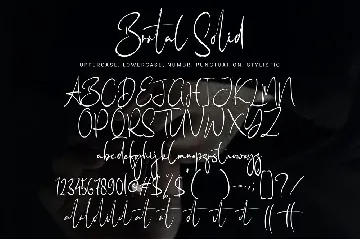 Brutal Solid
UPPERCASE, LOWERCASE, NUMBR, PUNCTUATION, STYLISTIC
ABCDEFGHIJKLMN
OPQRSTUVWXYZ
abcdefghijklmnopqrstuvwxyz
1234567890!@#$%^&*()-:;,[]?/